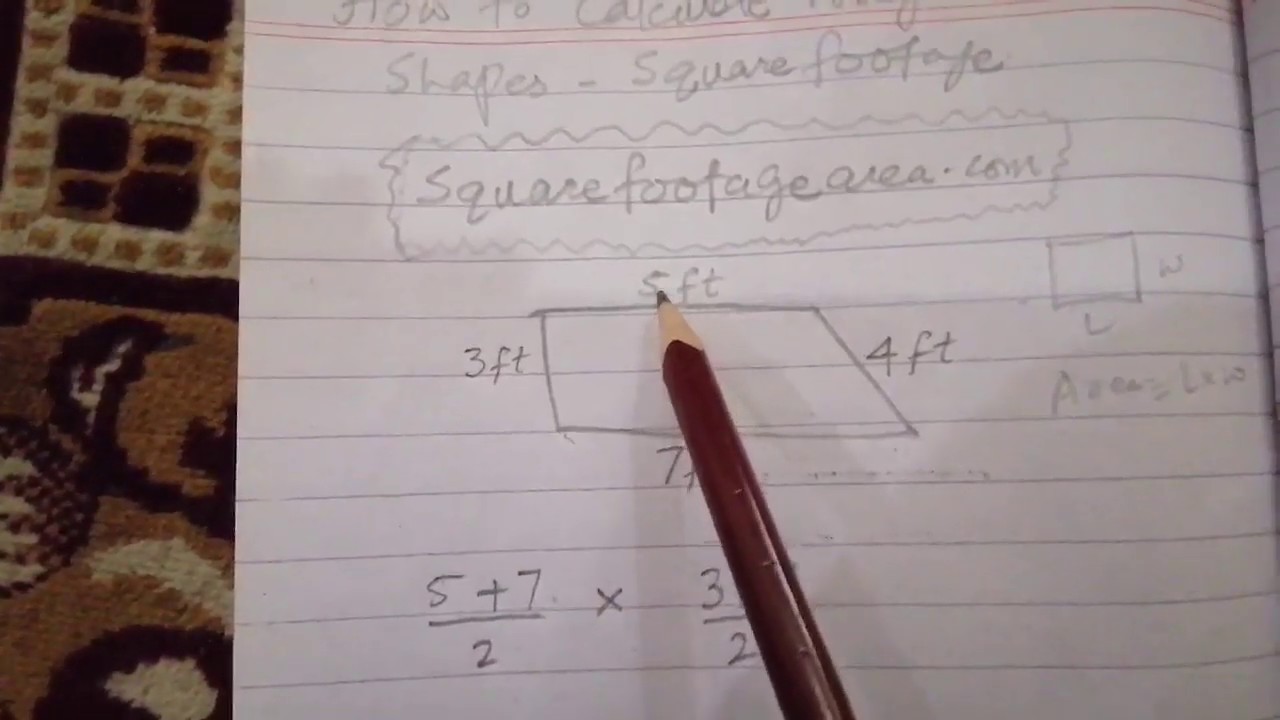 How to Calculate
Shapes - Squarefootage
Squarefootagearea.com
5ft
3ft
4ft
7
W
L
Area = L×W
5+7 × 3
2 2